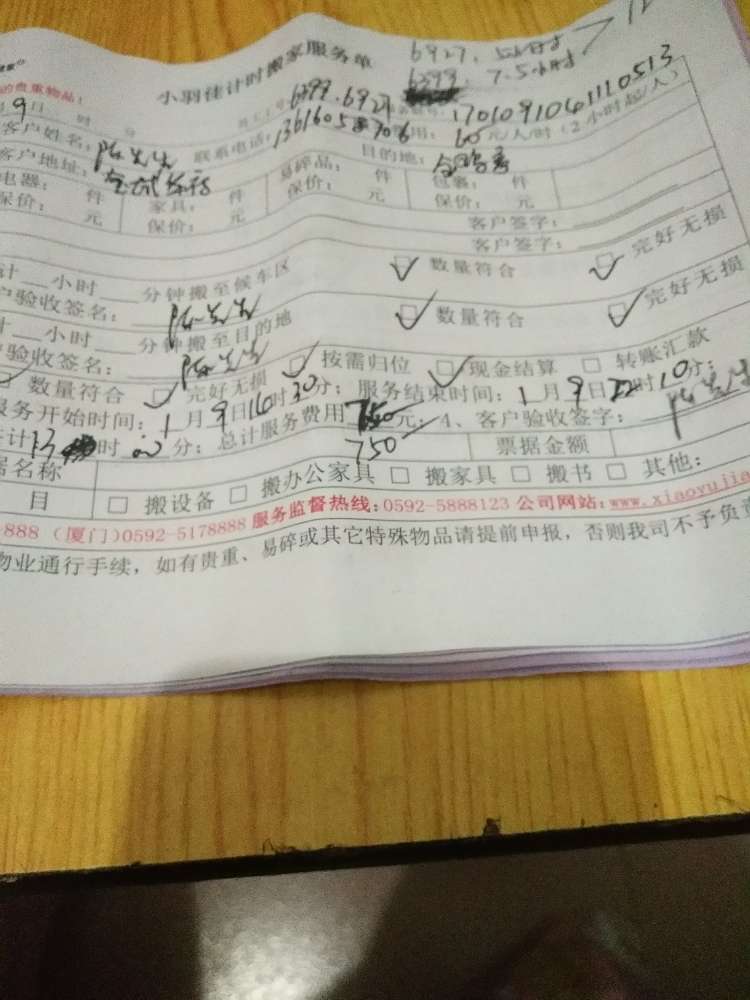 小羽佳计时搬家服务单
6927. 5小时
6399. 7.5小时
12
的贵重物品！
月9日 时 分
员工工号6399.6927
17010910401110513
客户姓名：陈先生 联系电话：
用：60元/人/时（2小时起/人）
客户地址： 目的地：
电器： 件 家具： 件 易碎品： 件 包裹： 件
保价： 元 保价： 元 保价： 元 保价： 元
客户签字：
客户签字：
计 小时 分钟搬至候车区 ☑ 数量符合 ☑ 完好无损
户验收签名：陈先生
计 小时 分钟搬至目的地 ☑ 数量符合 ☑ 完好无损
户验收签名：陈先生
☑ 数量符合 ☑ 完好无损 ☑ 按需归位 ☑ 现金结算 □ 转账汇款
服务开始时间：1月9日16时30分；服务结束时间：1月9日22时10分；
共计13时00分；总计服务费用750元；4、客户验收签字：陈先生
750
据名称 票据金额
目 □ 搬设备 □ 搬办公家具 □ 搬家具 □ 搬书 □ 其他：
-888（厦门）0592-5178888 服务监督热线：0592-5888123 公司网站：www.xiaoyujia
物业通行手续，如有贵重、易碎或其它特殊物品请提前申报，否则我司不予负责